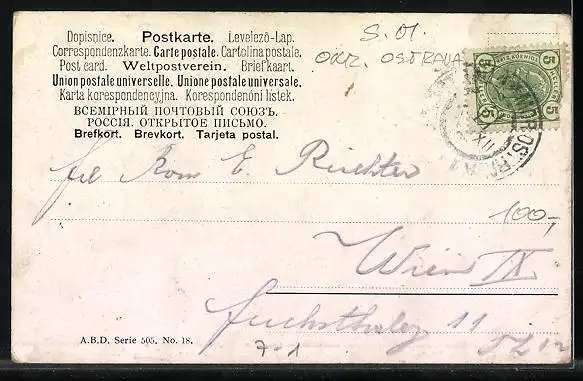 Dopisnice. Postkarte. Levelező-Lap.
Correspondenzkarte. Carte postale. Cartolina postale.
Post card. Weltpostverein. Briefkaart.
Union postale universelle. Unione postale universale.
Karta korespondencyjna. Korespondenóni lístek.
ВСЕМІРНЫЙ ПОЧТОВЫЙ СОЮЗЪ.
РОССІЯ. ОТКРЫТОЕ ПИСЬМО.
Brefkort. Brevkort. Tarjeta postal.
S. 01.
OKR. OSTRAVA
5 5
5 5
E. Richter
100,-
Wien IX
Fuchsthalerg 11
A.B.D. Serie 505, No. 18.
7-1